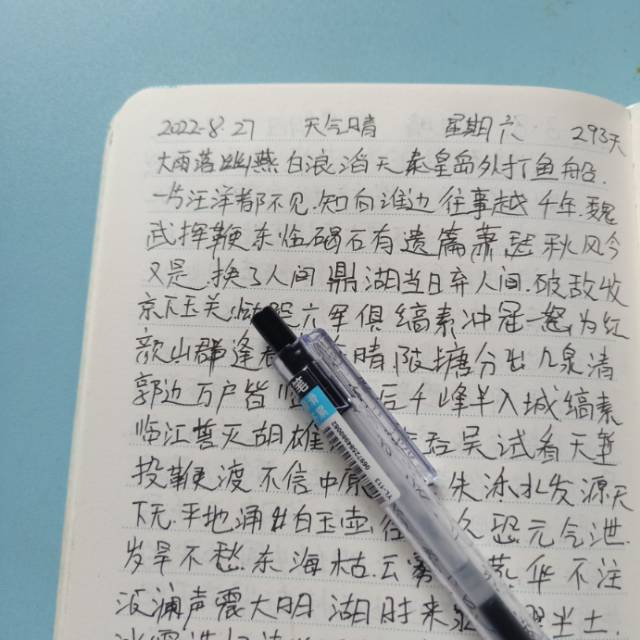 2022-8.27 天气晴 星期六 293天
大雨落幽燕白浪滔天秦皇岛外打鱼船.
一片汪洋都不见.知向谁边往事越千年.魏
武挥鞭东临碣石有遗篇萧瑟秋风今
又是.换了人间鼎湖当日弃人间.破敌收
京下玉关 六军俱缟素冲冠一怒为红
颜山群逢 晴陂塘分出几泉清
郭边万户皆 后千峰半入城缟素
临江誓灭胡雄 吴试看天堑
投鞭渡不信中原 朱泺水发源天
下无.平地涌出白玉壶 久恐元气泄.
岁旱不愁东海枯.云雾 华不注
波澜声震大明湖时来 尘土.